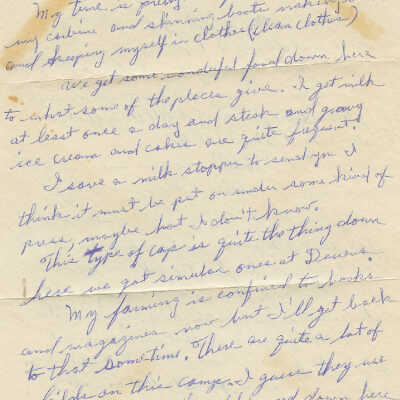 My time is pretty
my carbine and shinning boots making
and keeping myself in clothes (clean clothes)
We get some wonderful food down here
to what some of the places give. I get milk
at least once a day and steak and gravy
ice cream and cokes are quite frequent.
I save a milk stopper to send you I
think it must be put on under some kind of
press, maybe hot I don't know.
This type of cap is quite the thing down
here we got simular ones at Devens.
My farming is confined to books
and magazines now but I'll get back
to that sometime. There are quite a lot of
on this camp. I guess they use
down here